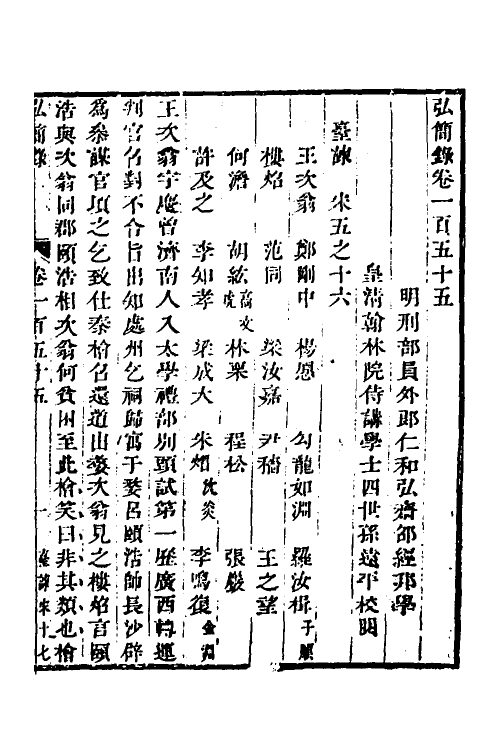 弘簡錄卷一百五十五
明刑部員外郎仁和弘齋邵經邦學
皇清翰林院侍講學士四世孫遠平校閱
臺諫　宋五之十六
王次翁　鄭剛中　楊愿　勾龍如淵　羅汝楫子願
樓炤　范同　梁汝嘉　尹穡　王之望
何澹　胡紘高文虎　林栗　程松　張巖
許及之　李知孝　梁成大　朱熠沈炎　李鳴復金淵
王次翁字慶曾濟南人入太學禮部別頭試第一歷廣西轉運
判官召對不合旨出知處州乞祠歸寓于婺呂頤浩帥長沙辟
為叅謀官頃之乞致仕秦檜召還道出婺次翁見之樓炤言頤
浩與次翁同郡頤浩相次翁何貧困至此檜笑曰非其類也檜
弘簡錄　卷一百五十五　一　臺諫宋十七